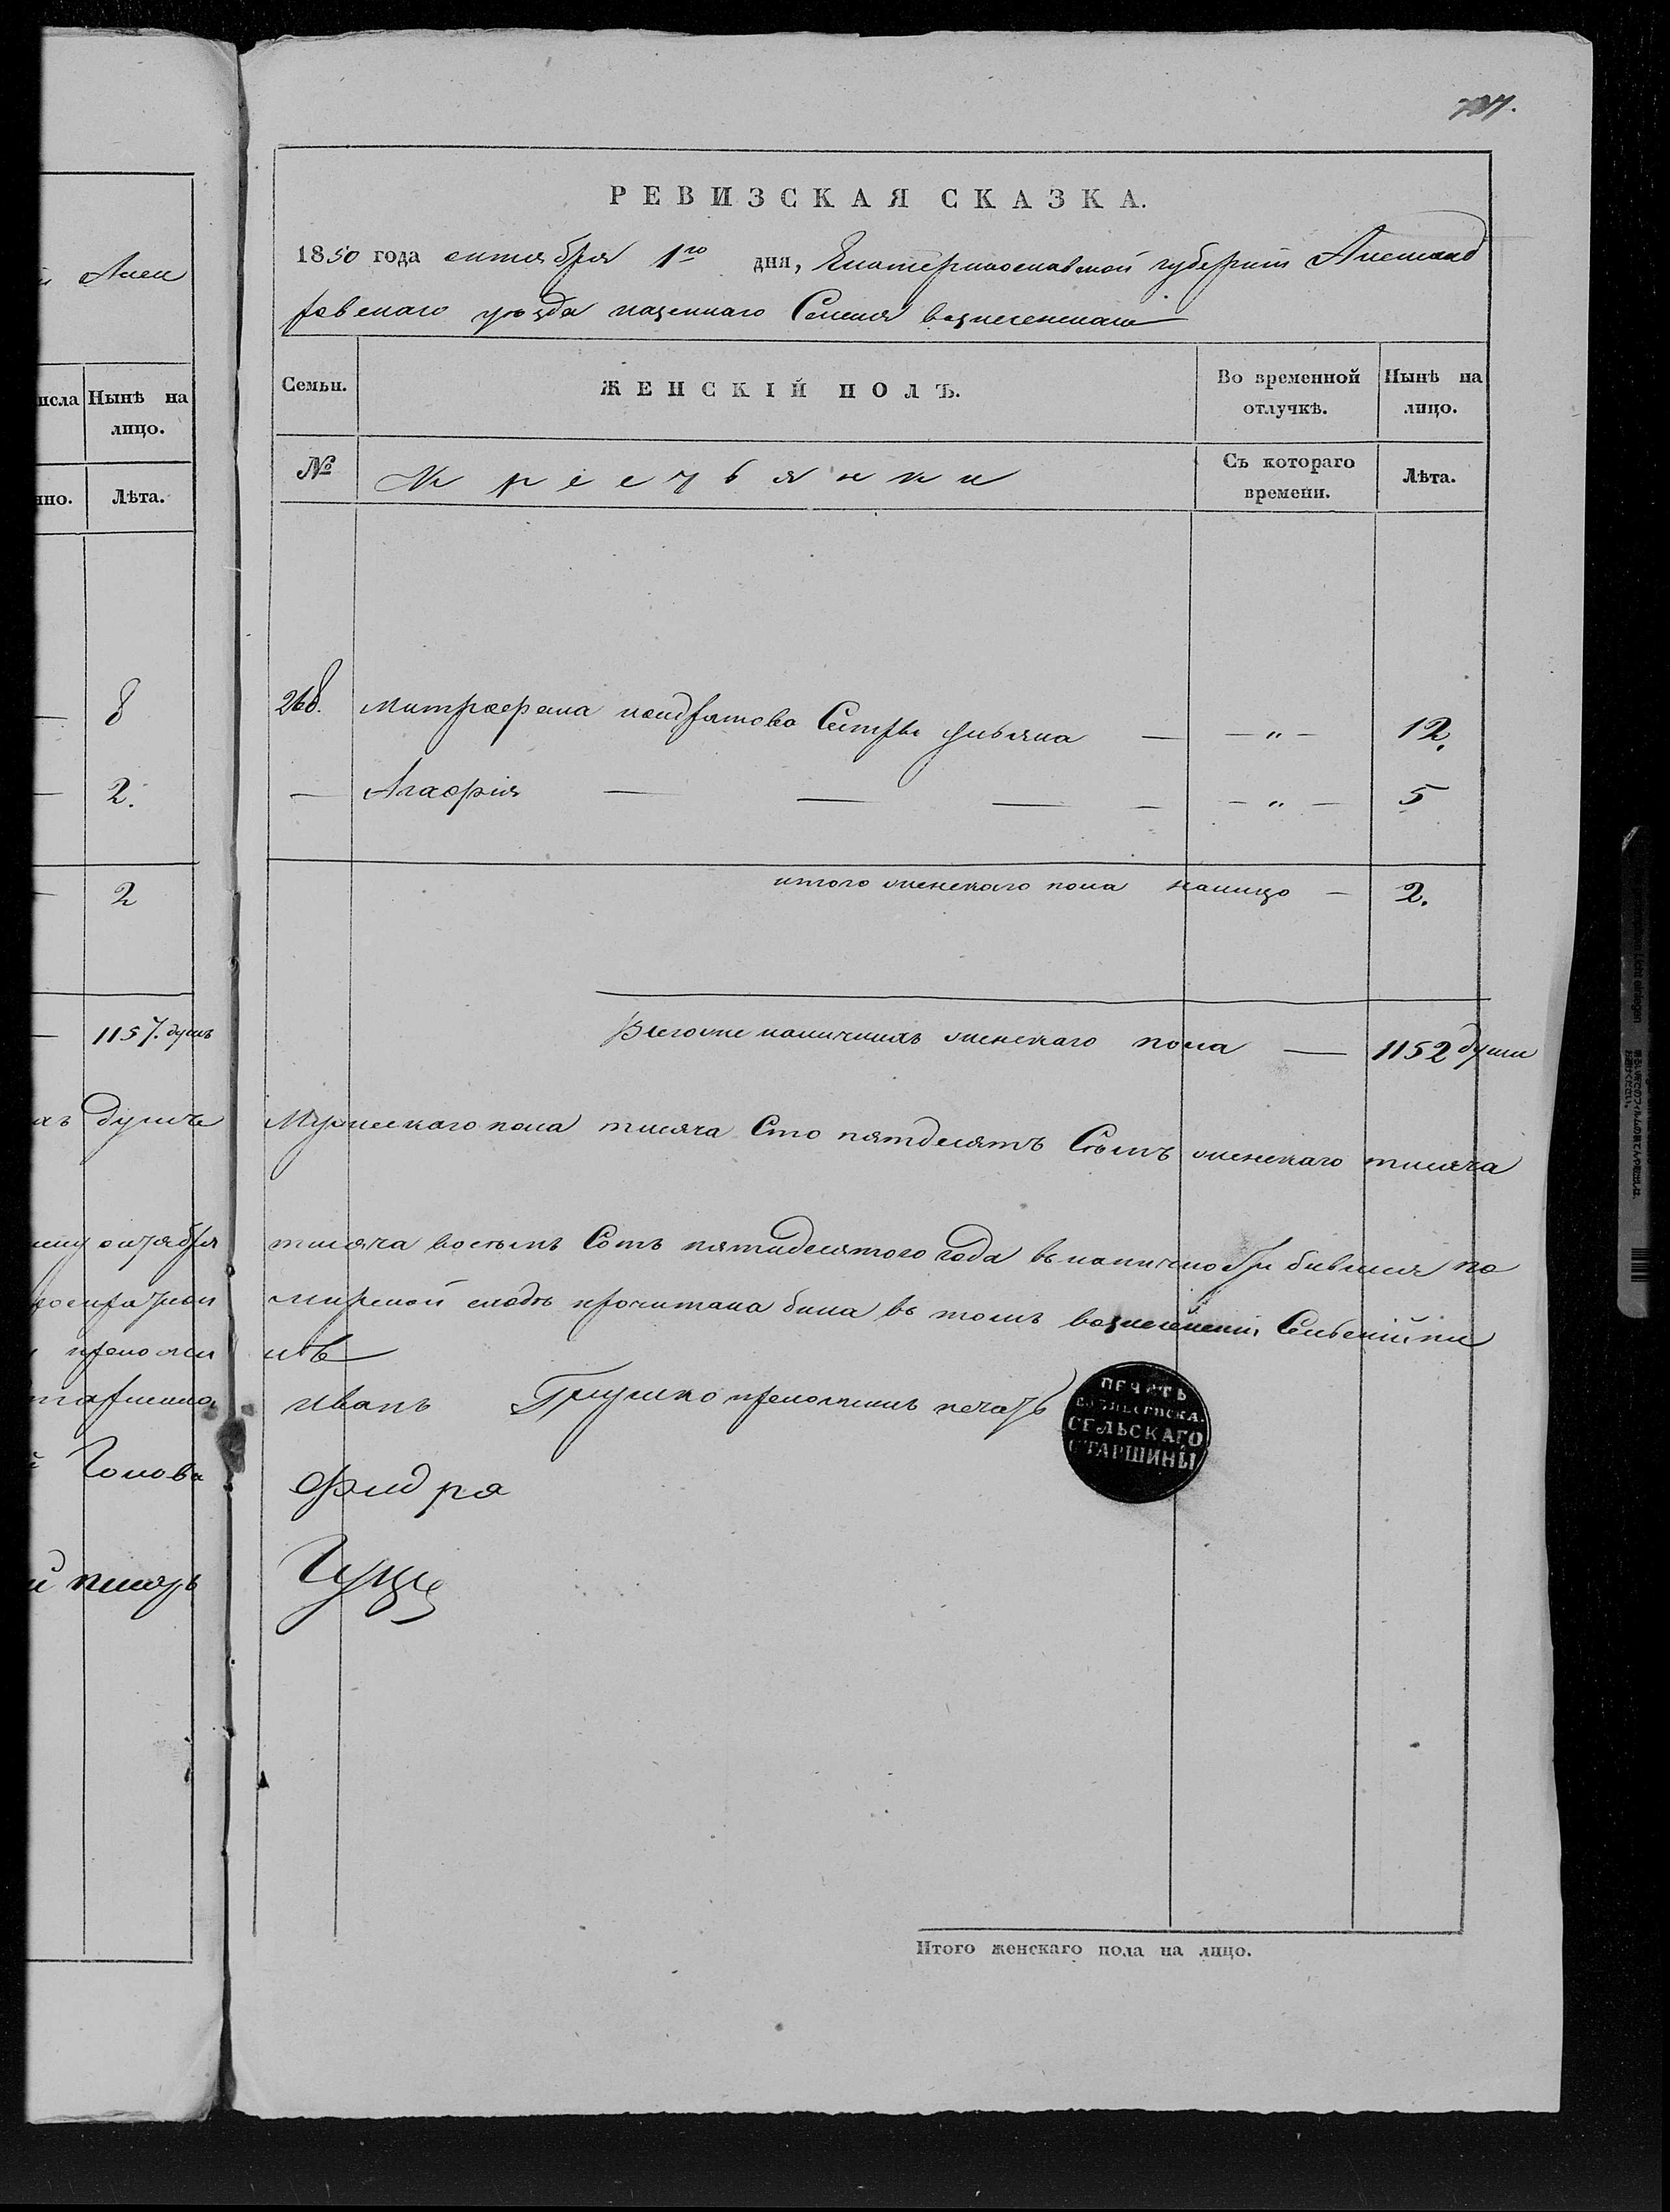 737.
и Алек
исла Нынѣ на
лицо.
нно. Лѣта.
— 8
— 2.
— 2
— 1157. душъ
хъ душъ
октября
приложи
старшина
Голова
й писарь
РЕВИЗСКАЯ СКАЗКА.
1850 года октября 1го дня, Екатеринославской губерніи Александ
ровскаго уѣзда казеннаго Селенія вознесенскаго
Семьи. ЖЕНСКІЙ ПОЛЪ. Во временной отлучкѣ. Нынѣ на лицо.
№ Крестьянки Съ котораго времени. Лѣта.
268. Митрофана кондратова Сестры ульяна — — " — 12.
— Агафія — — — — — " — 5
итого женскаго пола налицо — 2.
Всегоже наличныхъ женскаго пола — 1152 души
Мужескаго пола тисяча Сто пятдесятъ Семъ женскаго тисяча
тисяча восемъ Сотъ пятидесятого года въ наличности бившия по
мирской сходъ прочитана била въ томъ вознесенский Сельский
Иванъ Глушко приложилъ печать
ПЕЧАТЬ
ВОЗНЕСЕНСКА.
СЕЛЬСКАГО
СТАРШИНЫ
Итого женскаго пола на лицо.